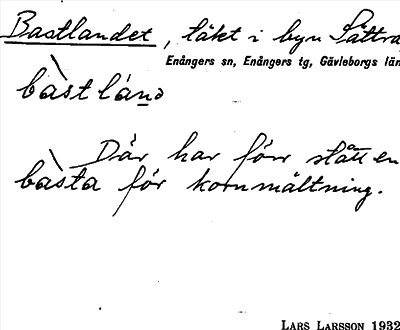 Bastlandet, täkt i byn Sättra
Enångers sn, Enångers tg, Gävleborgs län
bàstlánd
Där har förr stått en
bàsta för kornmältning.
LARS LARSSON 1932